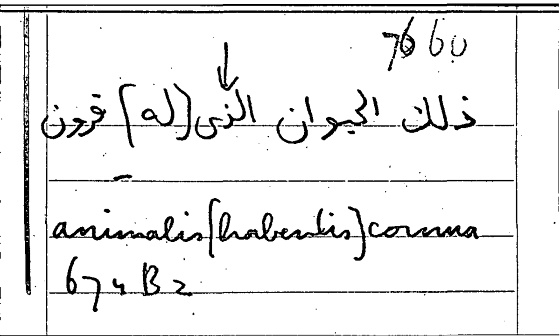 7660
ذلك الحيوان الذى [له] قرون
animalis [habentis] cornua
674 B 2